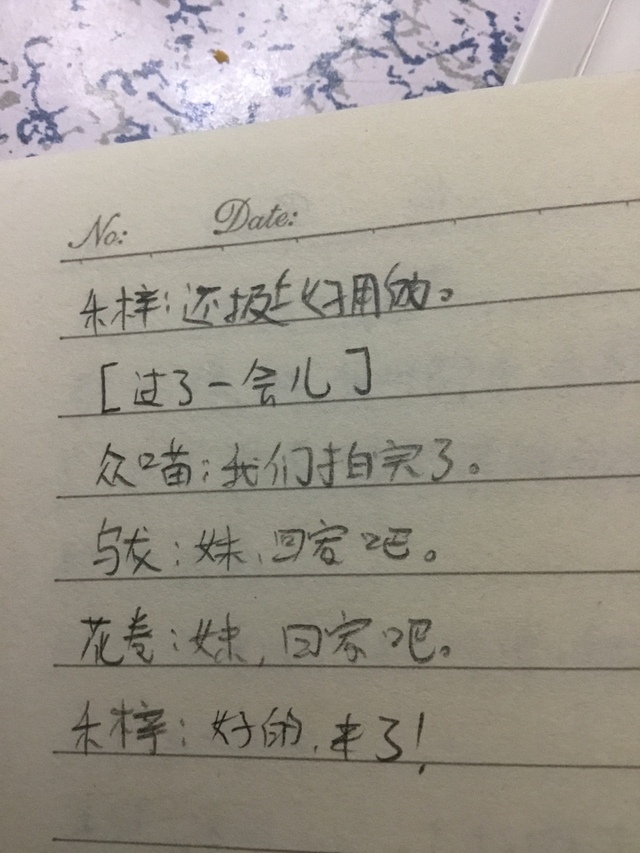 No: Date:
朱梓：还挺好用的。
[过了一会儿]
众喵：我们拍完了。
乌龙：妹，回家吧。
花卷：妹，回家吧。
朱梓：好的，来了！